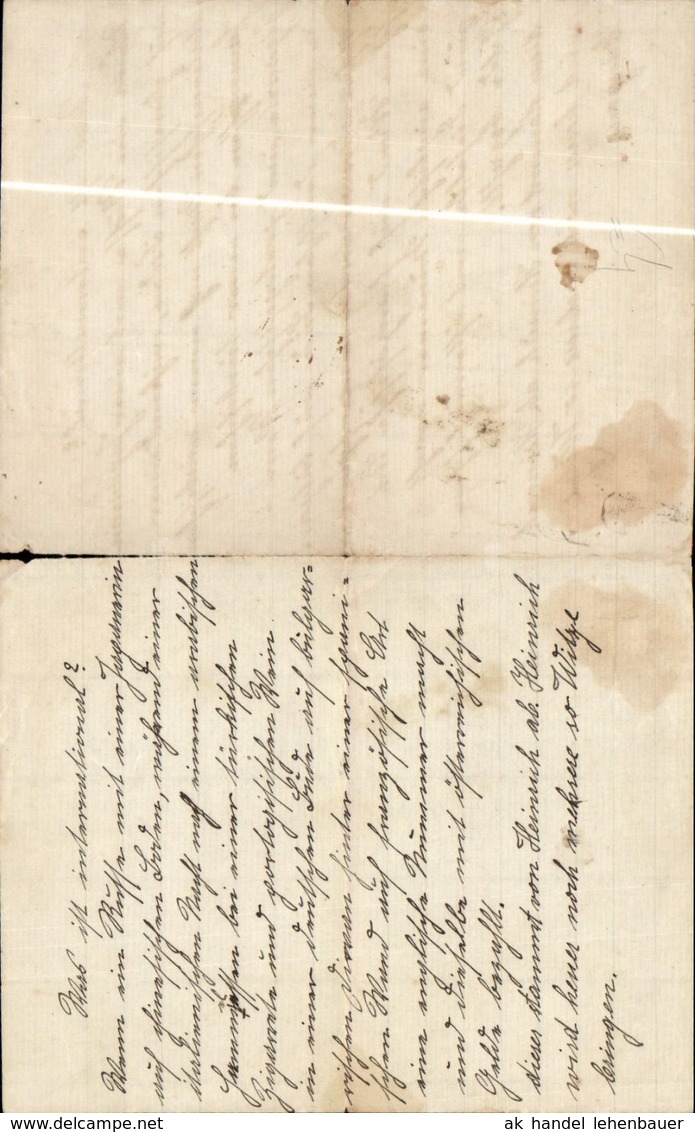 Was ist international?
Wenn ein Russe mit einer Japanerin
auf chinesischen Boden, während einer
italienischen Nacht nach einem arabischen
bei einer türkischen
Zigarette und portogisischen Wein
in einer deutschen Bude auf bulgar=
rischen Diwan hinter einer spani=
schen Wand auf französische Art
eine englische Nummer macht
und dieselbe mit österreichischen
Gelde bezahlt.
dieser stammt von Heinrich als Heinrich
wird heuer noch mehrere so Witze
bringen.
ak handel lehenbauer